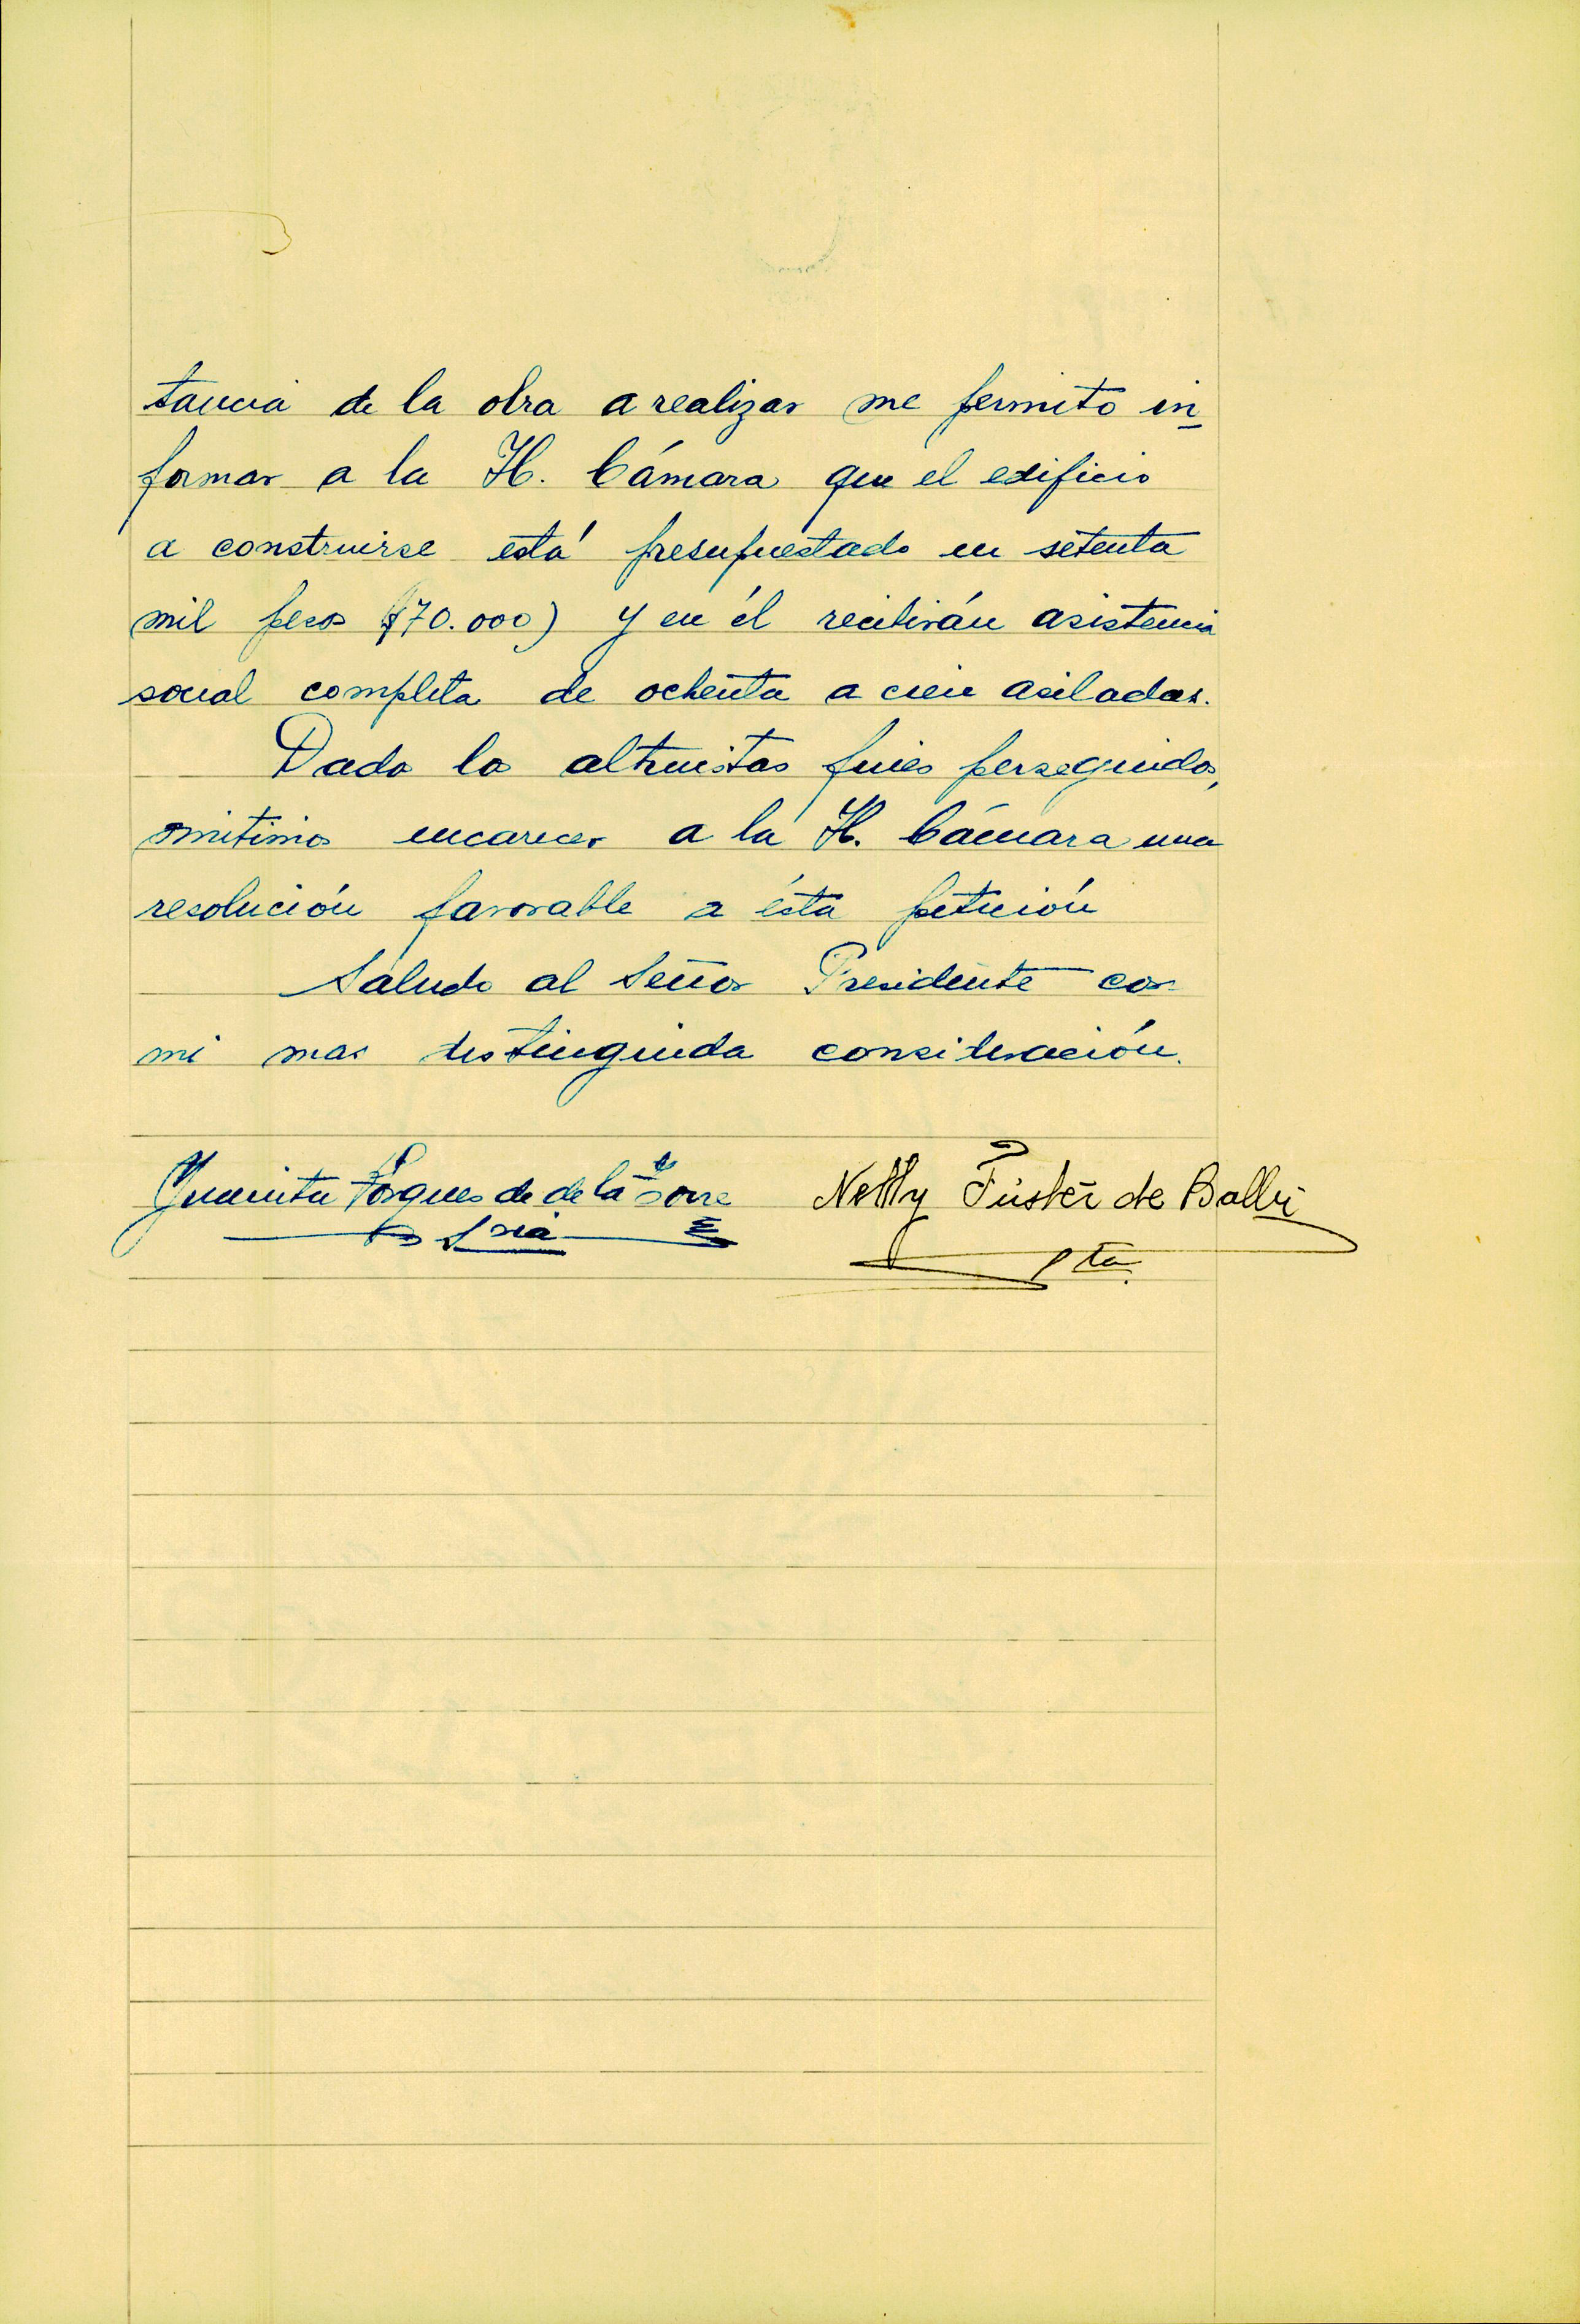 tancia de la obra a realizar me permito in
formar a la H. Cámara que el edificio
a construirse está presupuestado en setenta
mil pesos ($70.000) y en él recibirán asistencia
social completa de ochenta a cien asiladas.
Dado los altruistas fines perseguidos,
omitimos encarecer a la H. Cámara una
resolución favorable a ésta petición
Saludo al Señor Presidente con
mi mas distinguida consideración.
Juanita de de la Torre Nelly Fúster de
Sria
Pta.